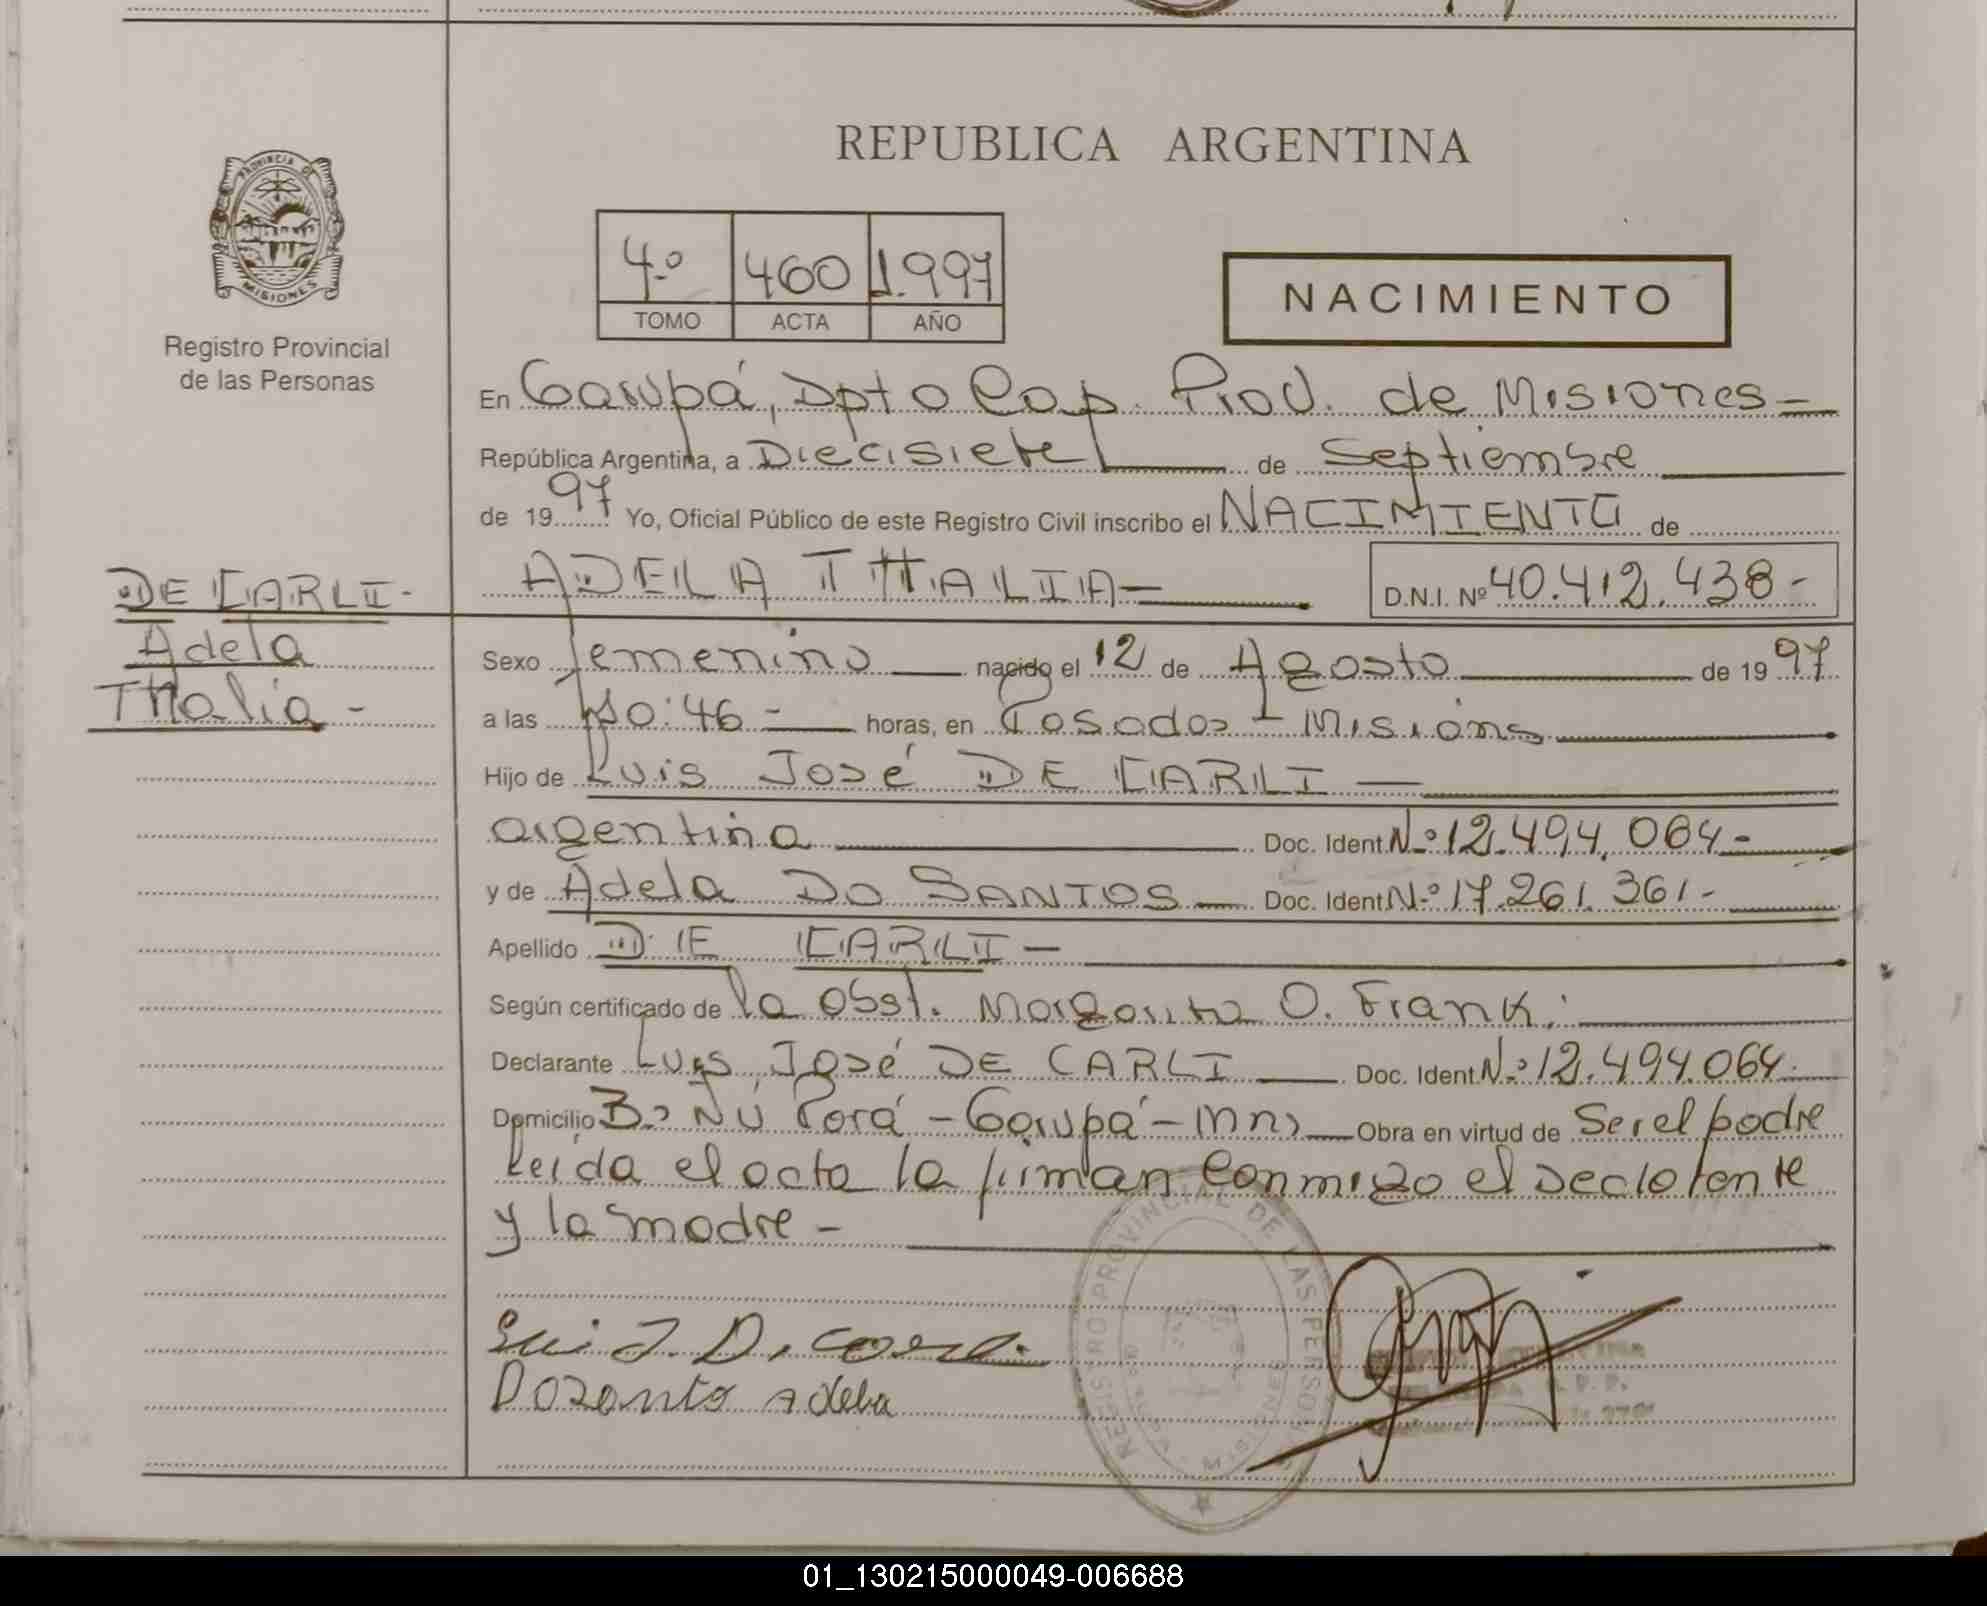 REPUBLICA ARGENTINA
PROVINCIA DE
MISIONES
Registro Provincial
de las Personas
4º 460 1.997
TOMO ACTA AÑO
NACIMIENTO
En Garupá, Dpto Cap. Prov. de Misiones-
República Argentina, a Diecisiete de Septiembre
de 1997 Yo, Oficial Público de este Registro Civil inscribo el NACIMIENTO de
ADELA THALIA- D.N.I. Nº 40.412.438-
DE CARLI-
Adela
Thalia -
Sexo femenino nacido el 12 de Agosto de 1997
a las 10:46 - horas, en Posadas - Misiones
Hijo de Luis José DE CARLI -
argentina Doc. Ident. Nº 12.494.064-
y de Adela DO SANTOS Doc. Ident. Nº 17.261.361-
Apellido DE CARLI -
Según certificado de la obst. Margarita O. Frank.
Declarante Luis José DE CARLI Doc. Ident. Nº 12.494.064.
Domicilio Bº Ñu Porá - Garupá - Mnes Obra en virtud de Ser el padre
Leída el acta la firman conmigo el Declarante
y la madre -
Dosanto Adela
REGISTRO PROVINCIAL DE LAS PERSONAS
MISIONES
01_130215000049-006688